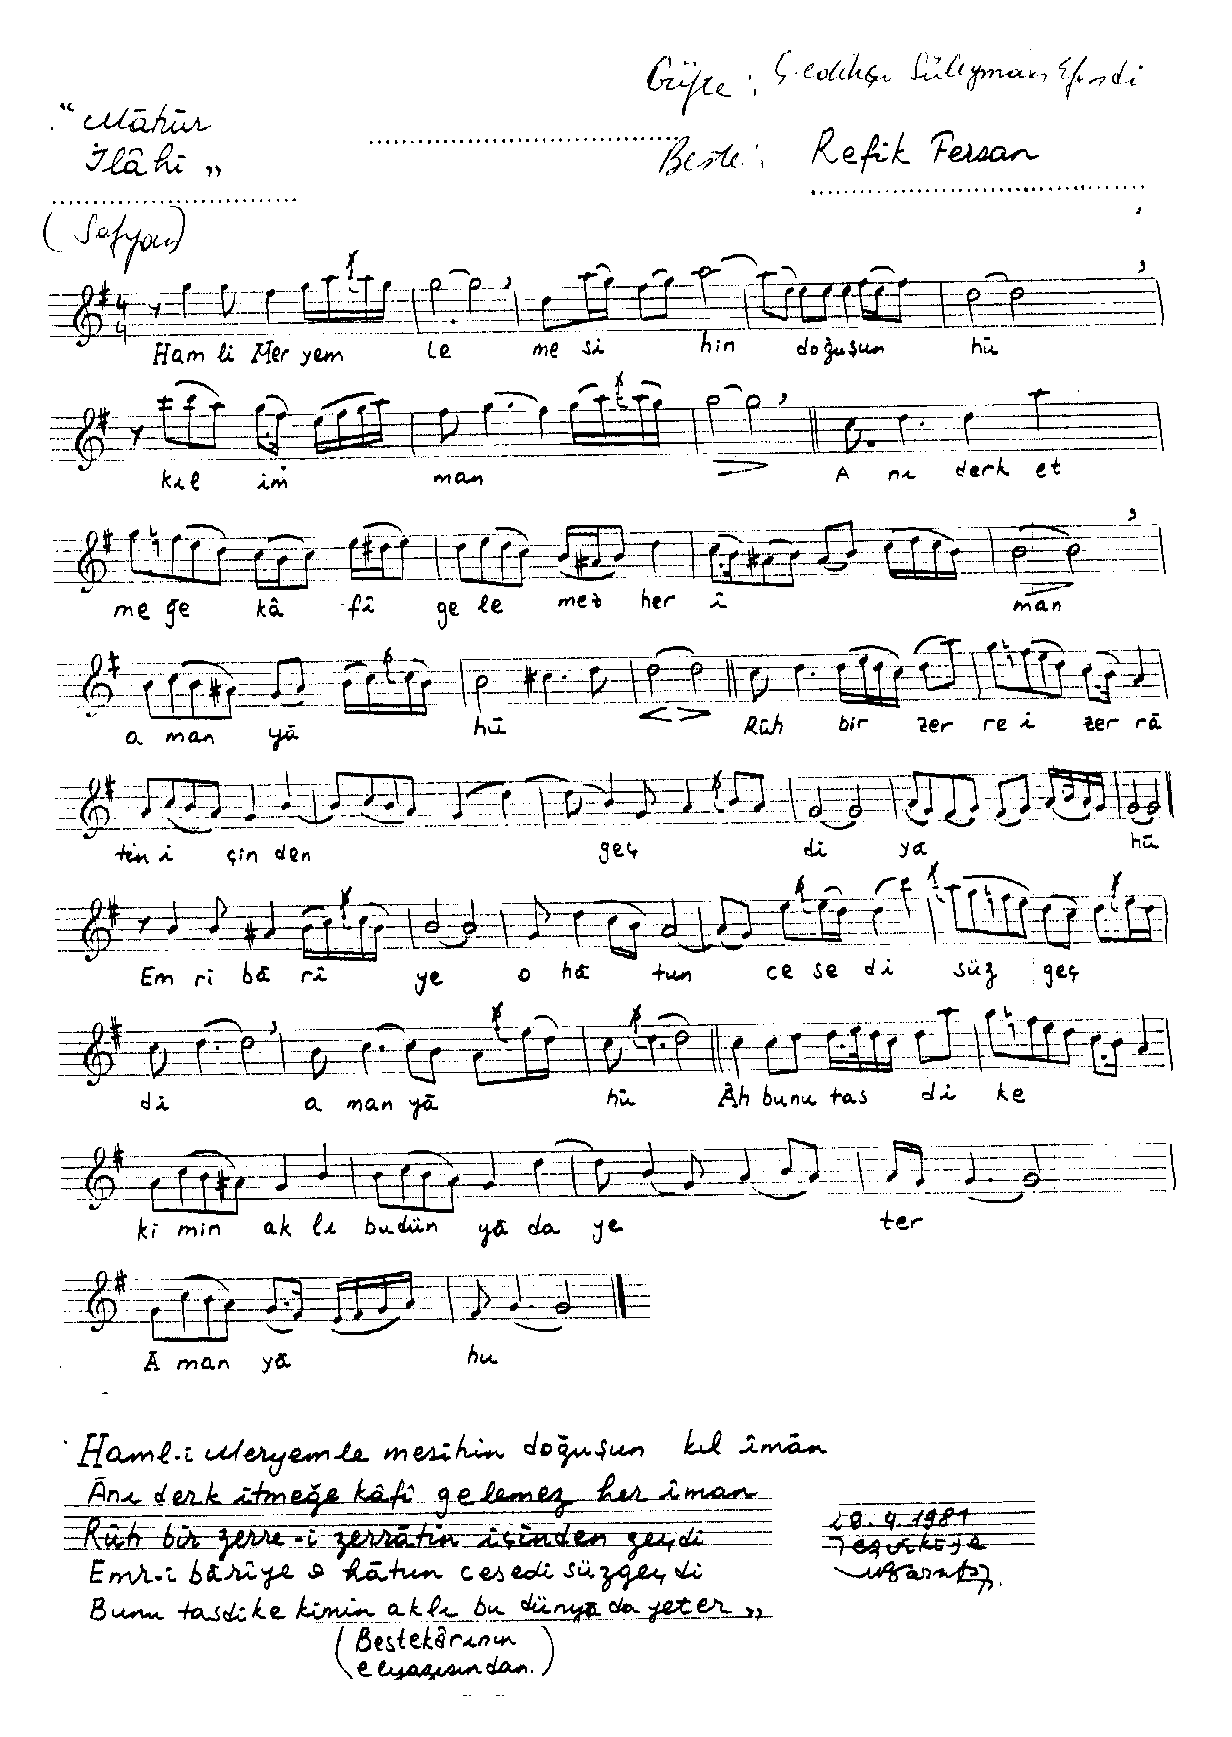 Güfte: Süleyman Efendi
"Mâhûr
İlâhî"
Beste: Refik Fersan
(Sofyan)
4
4
Ham li Mer yem le me si hin doğuşun hû
kıl im man A nı derk et
me ğe kâ fi ge le mez her i man
a man yâ hû Rûh bir zer re i zer râ
tin i çin den geç di ya hû
Em ri bâ rî ye o hâ tun ce se di süz geç
di a man yâ hû Âh bunu tas di ke
ki min ak lı budün yâ da ye ter
A man yâ hu
Haml-i Meryemle mesihin doğuşun kıl îmân
Ânı derk itmeğe kâfi gelemez her îman
Rûh bir zerre-i zerrâtin içinden geçdi
Emr-i bârîye o hâtun cesedi süzgeçdi
Bunu tasdike kimin aklı bu dünyâda yeter"
(Bestekârının
elyazısından.)
10.4.1981